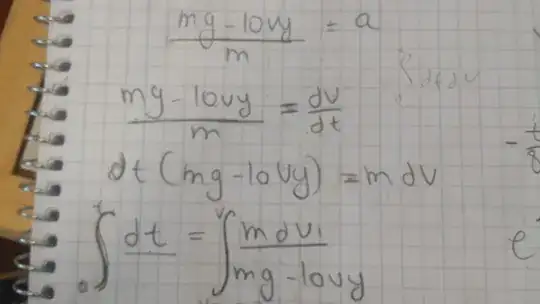 mg - 10vy / m = a
mg - 10vy / m = dv / dt
dt (mg - 10vy) = m dv
∫ 0 t dt = ∫ v m dv1 / mg - 10vy
e